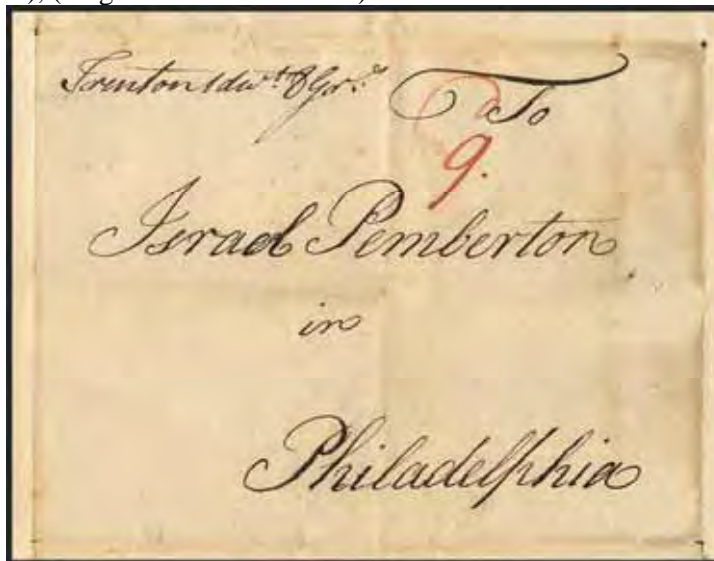 Trenton 1 dwt 8 Grs To
9.
Israel Pemberton
in
Philadelphia